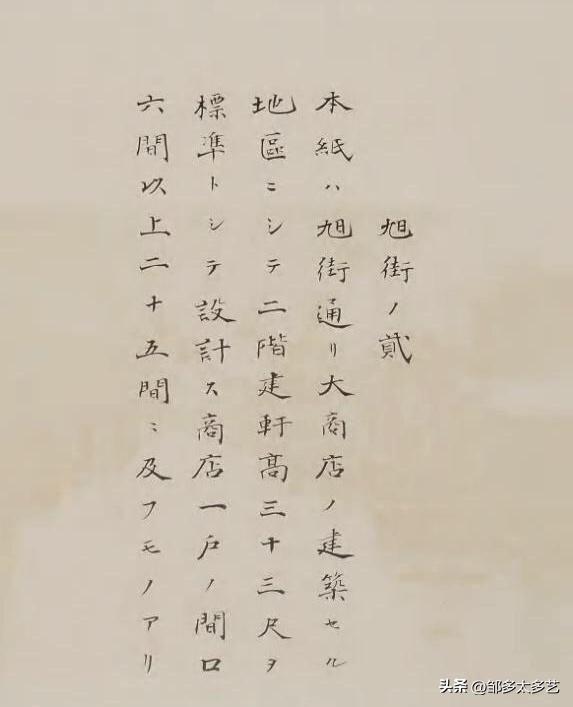 旭街ノ貮
本紙ハ旭街通リ大商店ノ建築セル
地區ニシテ二階建軒高三十三尺ヲ
標準トシテ設計ス商店一戶ノ間口
六間以上二十五間ニ及フモノアリ
头条 @邹多太多艺